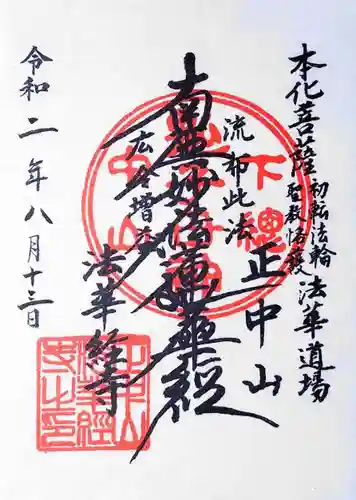 本化菩薩初転法輪
聖教格護法華道場
正中山
流布此法
南無妙法蓮華経
広令増益
法華経寺
令和二年八月十三日
下總
中山